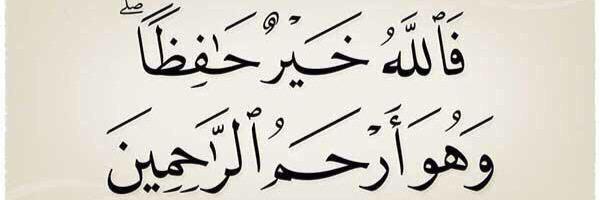 فَٱللَّهُ خَيْرٌ حَـٰفِظًا ۖ
وَهُوَ أَرْحَمُ ٱلرَّٰحِمِينَ